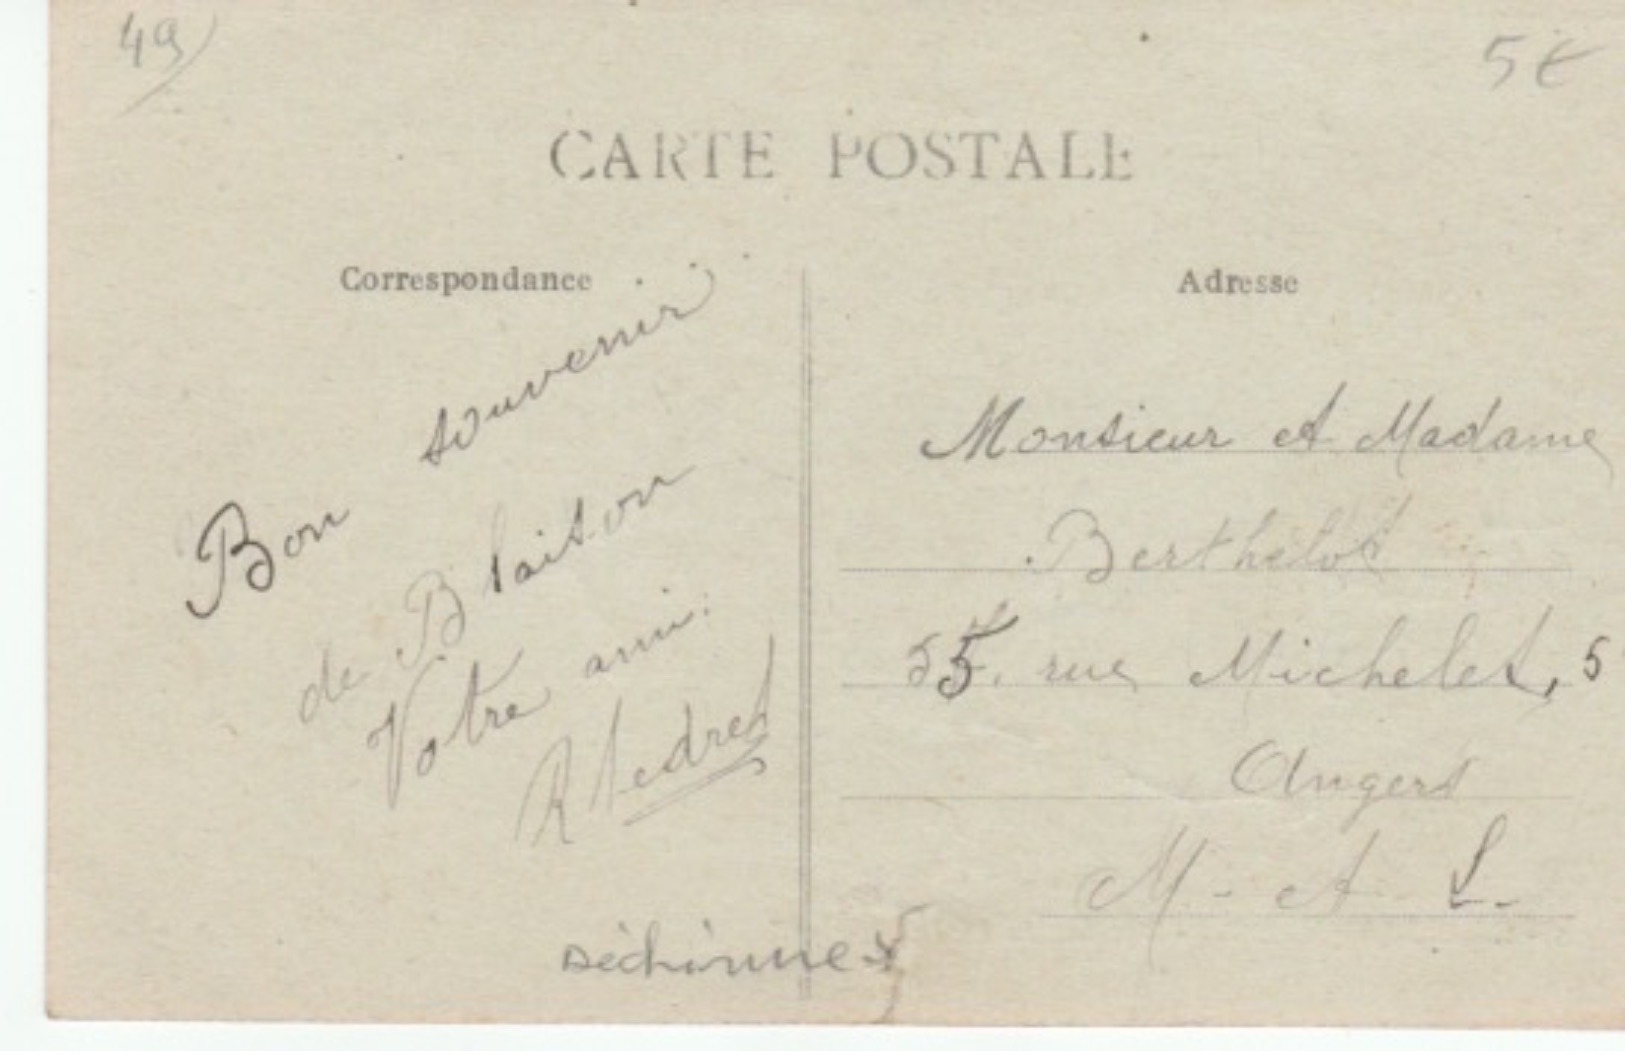 49
5€
CARTE POSTALE
Correspondance
Adresse
Bon souvenir
de Blaison
Votre ami
Monsieur et Madame
Berthelot
55, rue Michelet, 5
Angers
M - et - L -